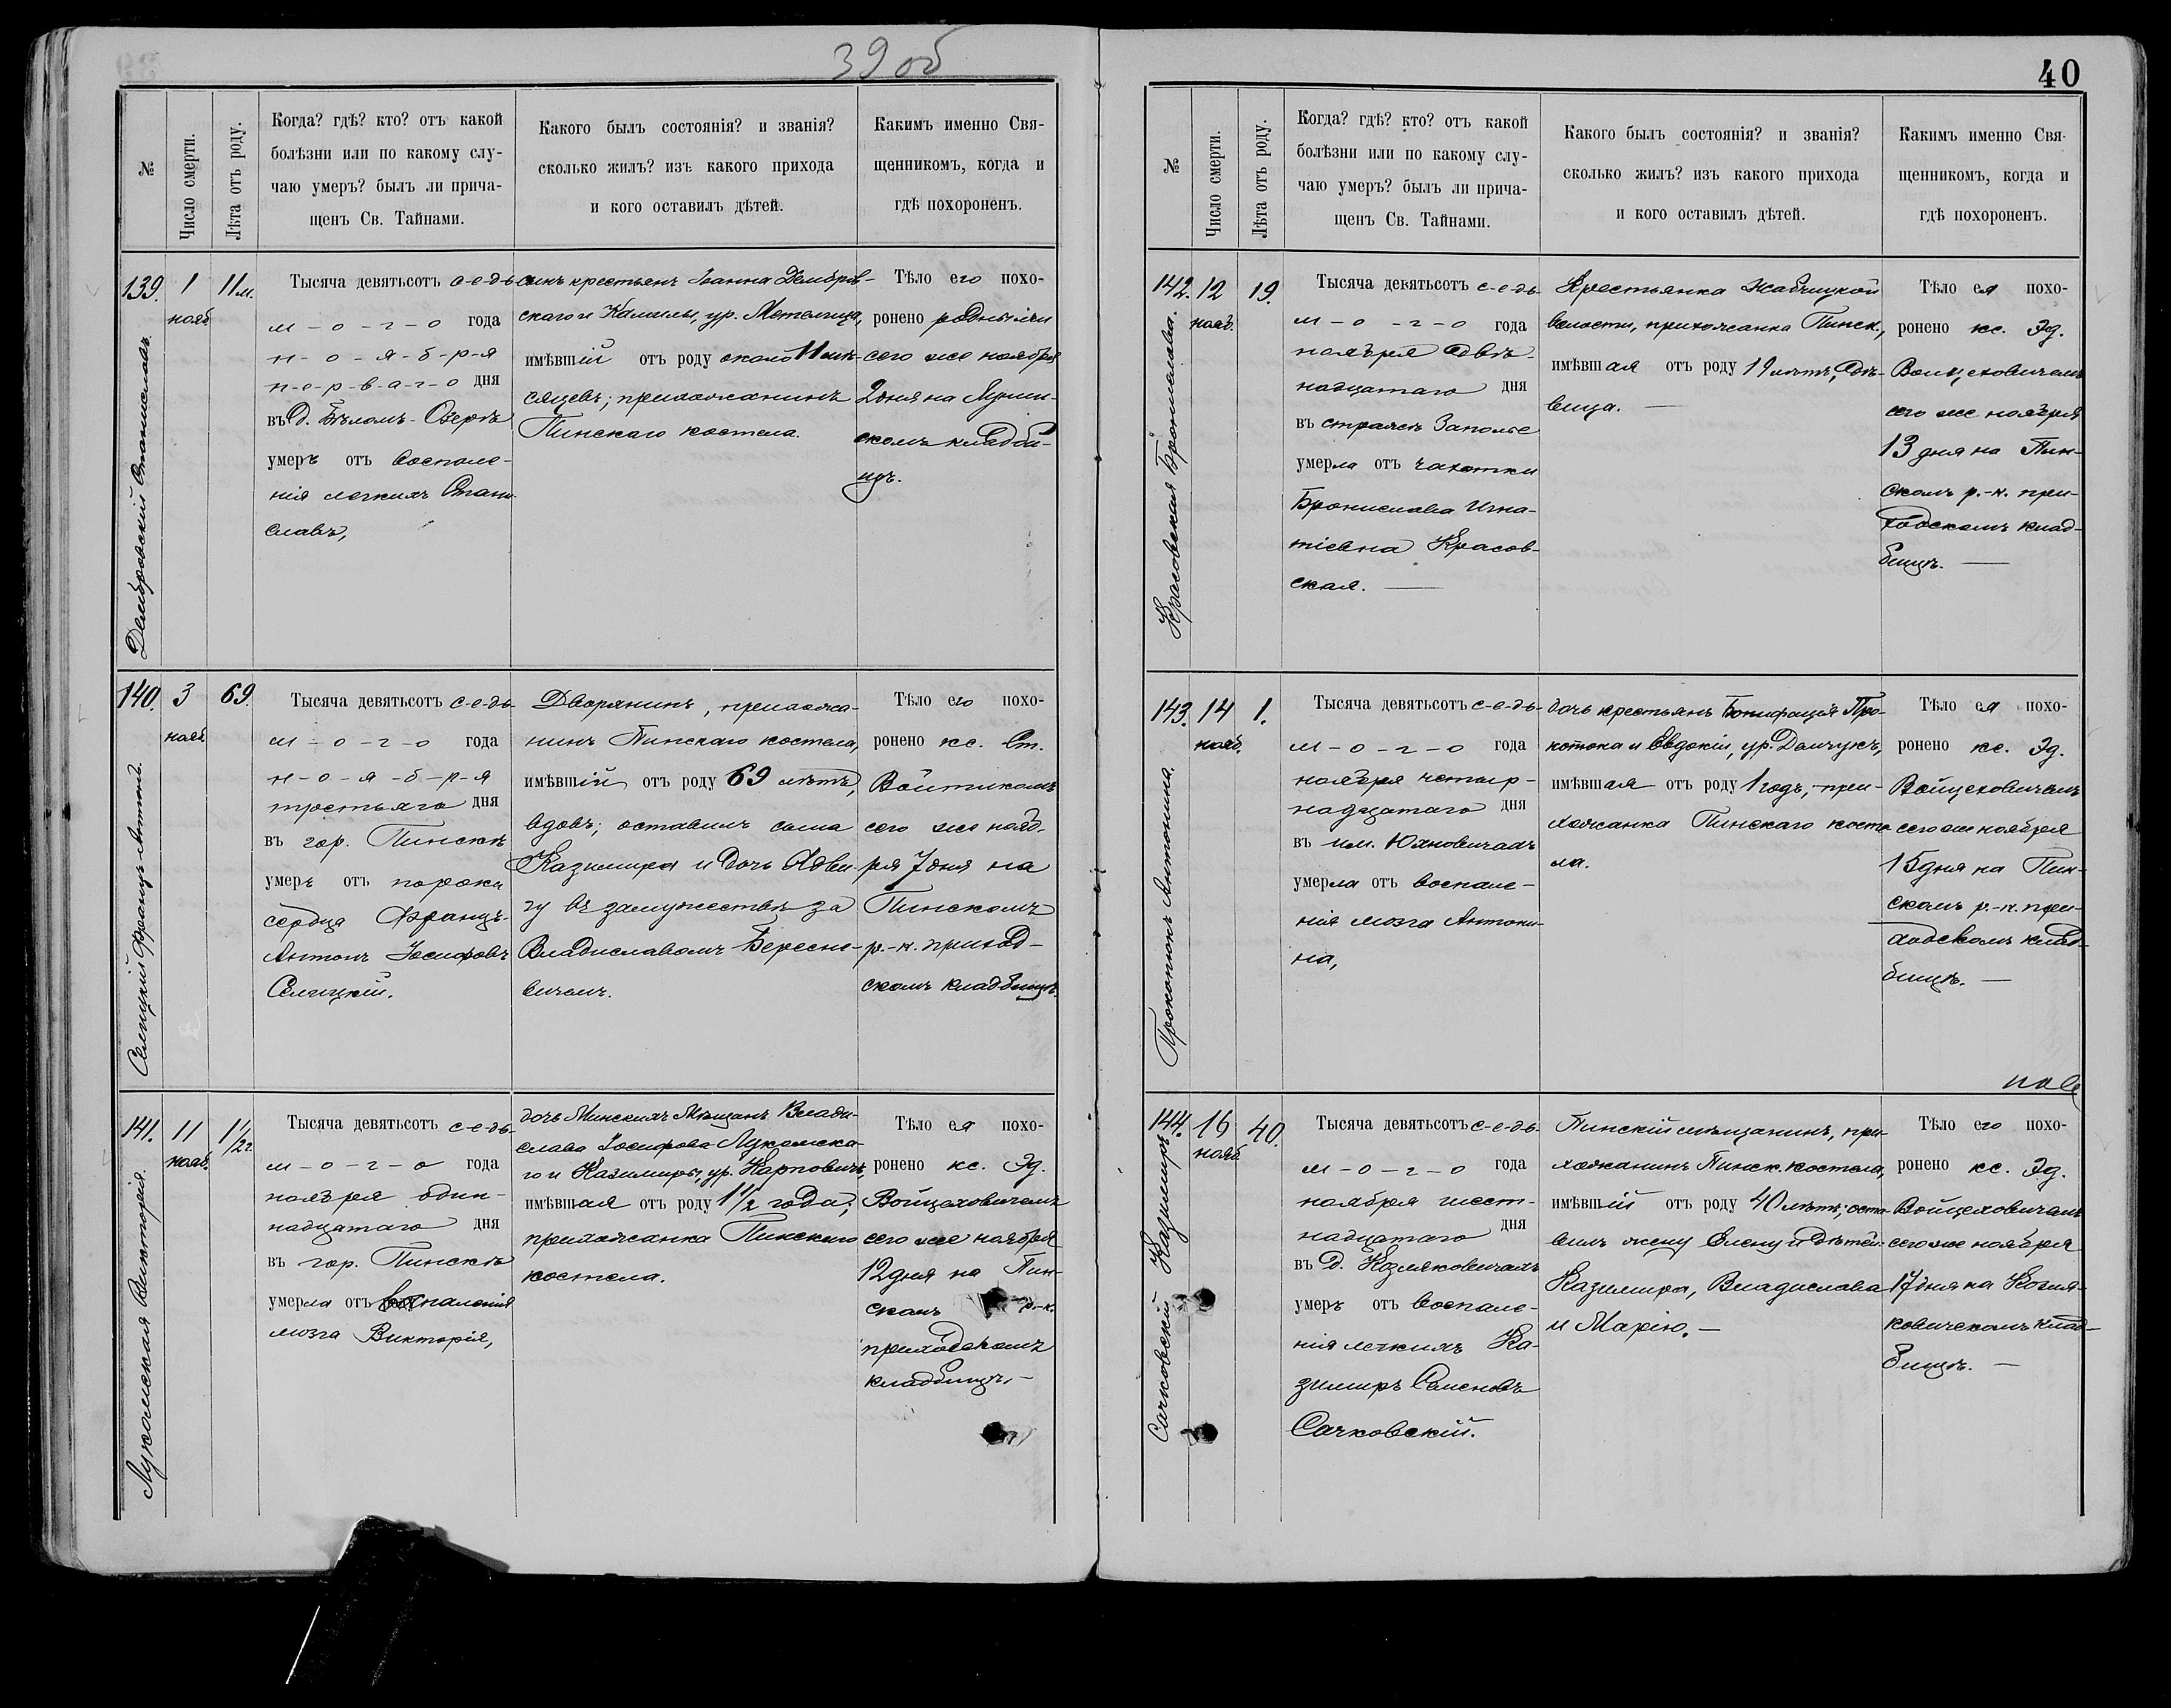 39 об
№
Число смерти.
Лѣта отъ роду.
Когда? гдѣ? кто? отъ какой
болѣзни или по какому слу-
чаю умеръ? былъ ли прича-
щенъ Св. Тайнами.
Какого былъ состоянія? и званія?
сколько жилъ? изъ какого прихода
и кого оставилъ дѣтей.
Какимъ именно Свя-
щенникомъ, когда и
гдѣ похороненъ.
139.
Дембровскій Станиславъ.
1
нояб
11 м.
Тысяча девятьсотъ с-е-дь-
м-о-г-о года
н-о-я-б-р-я
п-е-р-в-а-г-о дня
въ д. Бѣломъ-Озерѣ
умеръ отъ воспале-
нія легкихъ Стани-
славъ,
сынъ крестьянъ Іоанна Дембров-
скаго и Камилы, ур. Метелица,
имѣвшій отъ роду около 11 мѣ-
сяцевъ; прихожанинъ
Пинскаго костела.
Тѣло его похо-
ронено родными
сего же ноября
2 дня на
скомъ кладби-
щѣ.
140.
Селицкій Францъ-Антонъ.
3
нояб
69.
Тысяча девятьсотъ с-е-дь-
м-о-г-о года
н-о-я-б-р-я
третьяго дня
въ гор. Пинскѣ
умеръ отъ порока
сердца Францъ-
Антонъ Іосифовъ
Селицкій.
Дворянинъ, прихожа-
нинъ Пинскаго костела,
имѣвшій отъ роду 69 лѣтъ,
вдовъ; оставилъ сына
Казимира и дочь Ядви-
гу въ замужествѣ за
Владиславомъ Бересне-
вичемъ.
Тѣло его похо-
ронено кс. Ст.
Войтикомъ
сего же нояб-
ря 7 дня на
Пинскомъ
р.-к. приход-
скомъ кладбищѣ.
141.
Лукомская Викторія.
11
нояб.
1 1/2 г.
Тысяча девятьсотъ с-е-дь-
м-о-г-о года
ноября один-
надцатаго дня
въ гор. Пинскѣ
умерла отъ воспаленія
мозга Викторія,
дочь Минскихъ Мѣщанъ Влади-
слава Іосифова Лукомска-
го и Казимиры, ур. Карповичъ,
имѣвшая отъ роду 1 1/2 года;
прихожанка Пинскаго
костела.
Тѣло ея похо-
ронено кс. Эд.
Войцеховичемъ
сего же ноября
12 дня на Пин-
скомъ р.-к.
приходскомъ
кладбищѣ.-
40
№
Число смерти.
Лѣта отъ роду.
Когда? гдѣ? кто? отъ какой
болѣзни или по какому слу-
чаю умеръ? былъ ли прича-
щенъ Св. Тайнами.
Какого былъ состоянія? и званія?
сколько жилъ? изъ какого прихода
и кого оставилъ дѣтей.
Какимъ именно Свя-
щенникомъ, когда и
гдѣ похороненъ.
142.
Красовская Бронислава.
12
нояб.
19.
Тысяча девятьсотъ с-е-дь-
м-о-г-о года
ноября двѣ-
надцатаго дня
въ Заполье
умерла отъ чахотки
Бронислава Игна-
тіевна Красов-
ская.
Крестьянка Жабчицкой
волости, прихожанка Пинск.,
имѣвшая отъ роду 19 лѣтъ, дѣ-
вица.
Тѣло ея похо-
ронено кс. Эд.
Войцеховичемъ
сего же ноября
13 дня на Пин-
скомъ р.-к. при-
ходскомъ клад-
бищѣ.
143.
Прокопюкъ Антонина.
14
нояб.
1.
Тысяча девятьсотъ с-е-дь-
м-о-г-о года
ноября четыр-
надцатаго дня
въ им. Юхновичахъ
умерла отъ воспале-
нія мозга Антони-
на,
дочь крестьянъ Бонифація Про-
и Евдокіи, ур. Демчукъ,
имѣвшая отъ роду 1 годъ, при-
хожанка Пинскаго косте-
ла.
Тѣло ея похо-
ронено кс. Эд.
Войцеховичемъ
сего же ноября
15 дня на Пин-
скомъ р.-к. при-
ходскомъ клад-
бищѣ.
144.
Сачковскій Казимиръ
16
нояб
40.
Тысяча девятьсотъ с-е-дь-
м-о-г-о года
ноября шест-
надцатаго дня
въ д. Козляковичахъ
умеръ отъ воспале-
нія легкихъ Ка-
зимиръ Семеновъ
Сачковскій.
Пинскій мѣщанинъ, при-
хожанинъ Пинск. костела,
имѣвшій отъ роду 40 лѣтъ; оста-
вилъ жену Елену и дѣтей:
Казимира, Владислава
и Марію.
Тѣло его похо-
ронено кс. Эд.
Войцеховичемъ
сего же ноября
17 дня на Козля-
ковичскомъ клад-
бищѣ.